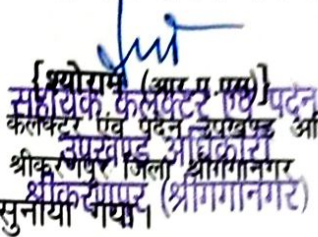 {श्योराम (आर.ए.एस)}
सहायक कलेक्टर एवं पदेन
कलेक्टर एवं पदेन उपखण्ड
उपखण्ड अधिकारी
श्रीकरणपुर जिला श्रीगंगानगर
श्रीकरणपुर (श्रीगंगानगर)
सुनाया गया।